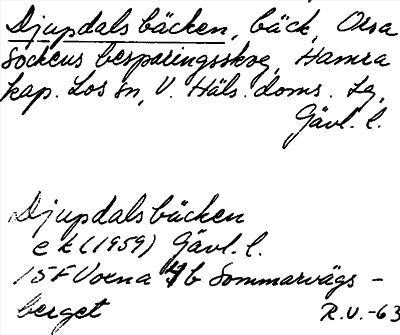 Djupdalsbäcken, bäck, Orsa
Sockens besparingsskog, Hamra
kap. Los sn, V. Häls. doms. sg,
Gävl. l.
Djupdalsbäcken
ek (1959) Gävl. l.
15F Voxna 4b Sommarvägs-
berget R.V.-63